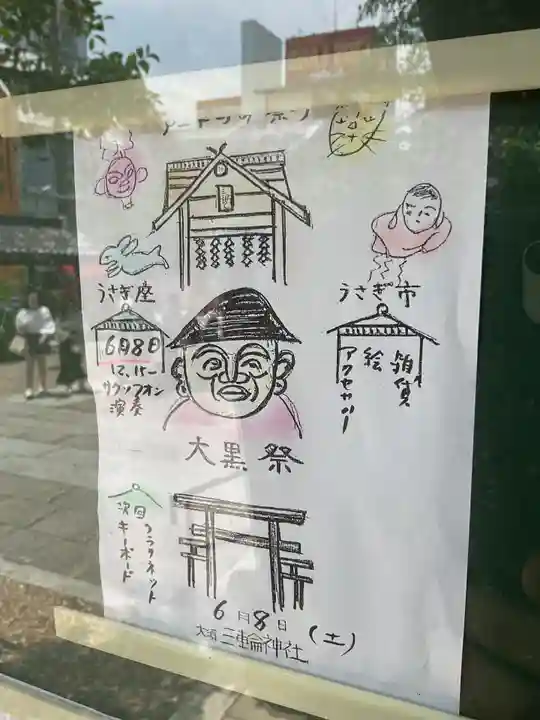 うさぎ座
6月8日
12,15〜
サクソフォン
演奏
うさぎ市
雑貨
絵
アクセサリー
大黒祭
次回
クラリネット
キーボード
6月8日(土)
大須三輪神社